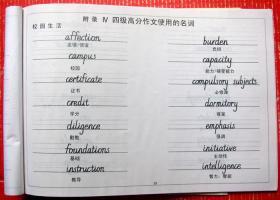 附录 Ⅳ 四级高分作文使用的名词
校园生活
affection
campus
校园
certificate
证书
credit
学分
diligence
勤勉
foundations
基础
instruction
教导
burden
负担
capacity
能力/接受能力
compulsory subjects
必修课
dormitory
寝室
emphasis
强调
initiative
主动性
intelligence
智力，智能